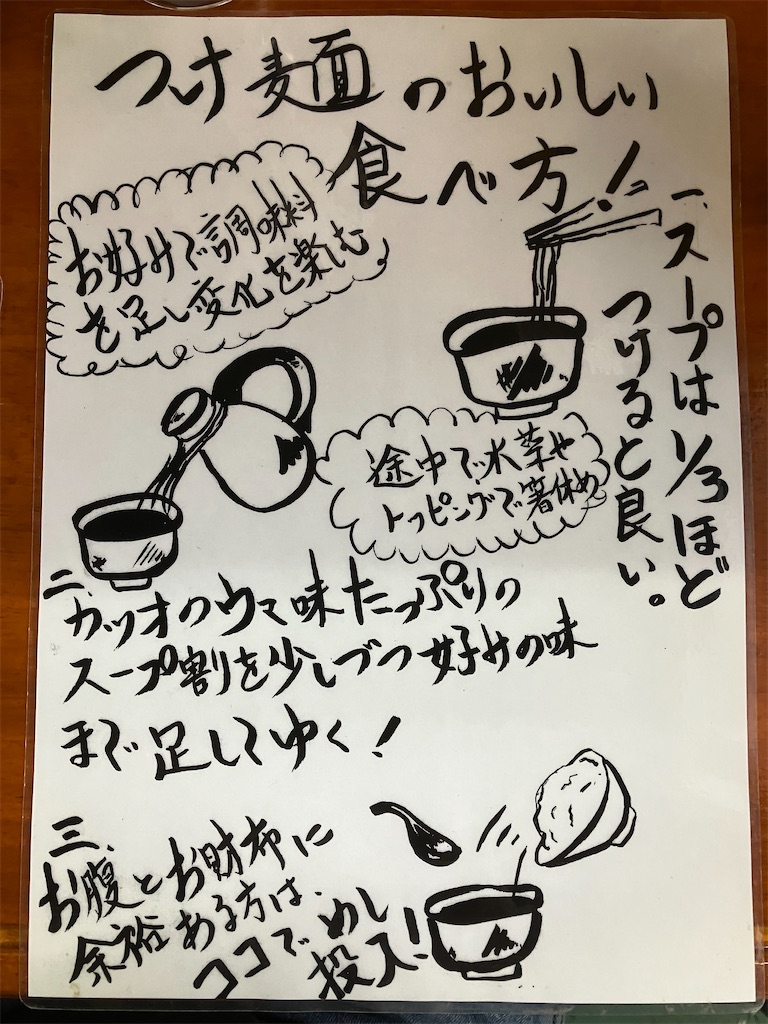 つけ麺のおいしい
食べ方!
一、スープは1/3ほど
つけると良い。
お好みで調味料
を足し変化を楽しむ
途中で水菜や
トッピングで箸休め
二、カツオのウマ味たっぷりの
スープ割を少しづつ好みの味
まで足してゆく!
三、お腹とお財布に
余裕ある方は、
ココでめし
投入!